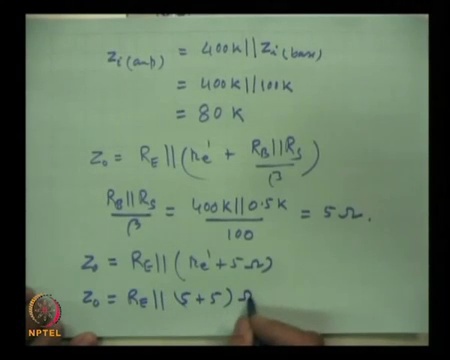 Zi(amp) = 400K||Zi(base)
= 400K||100K
= 80 K
Zo = RE||(re' + RB||RS/β)
RB||RS/β = 400K||0.5K/100 = 5 Ω.
Zo = RE||(re' + 5Ω)
Zo = RE||(5 + 5) Ω
NPTEL